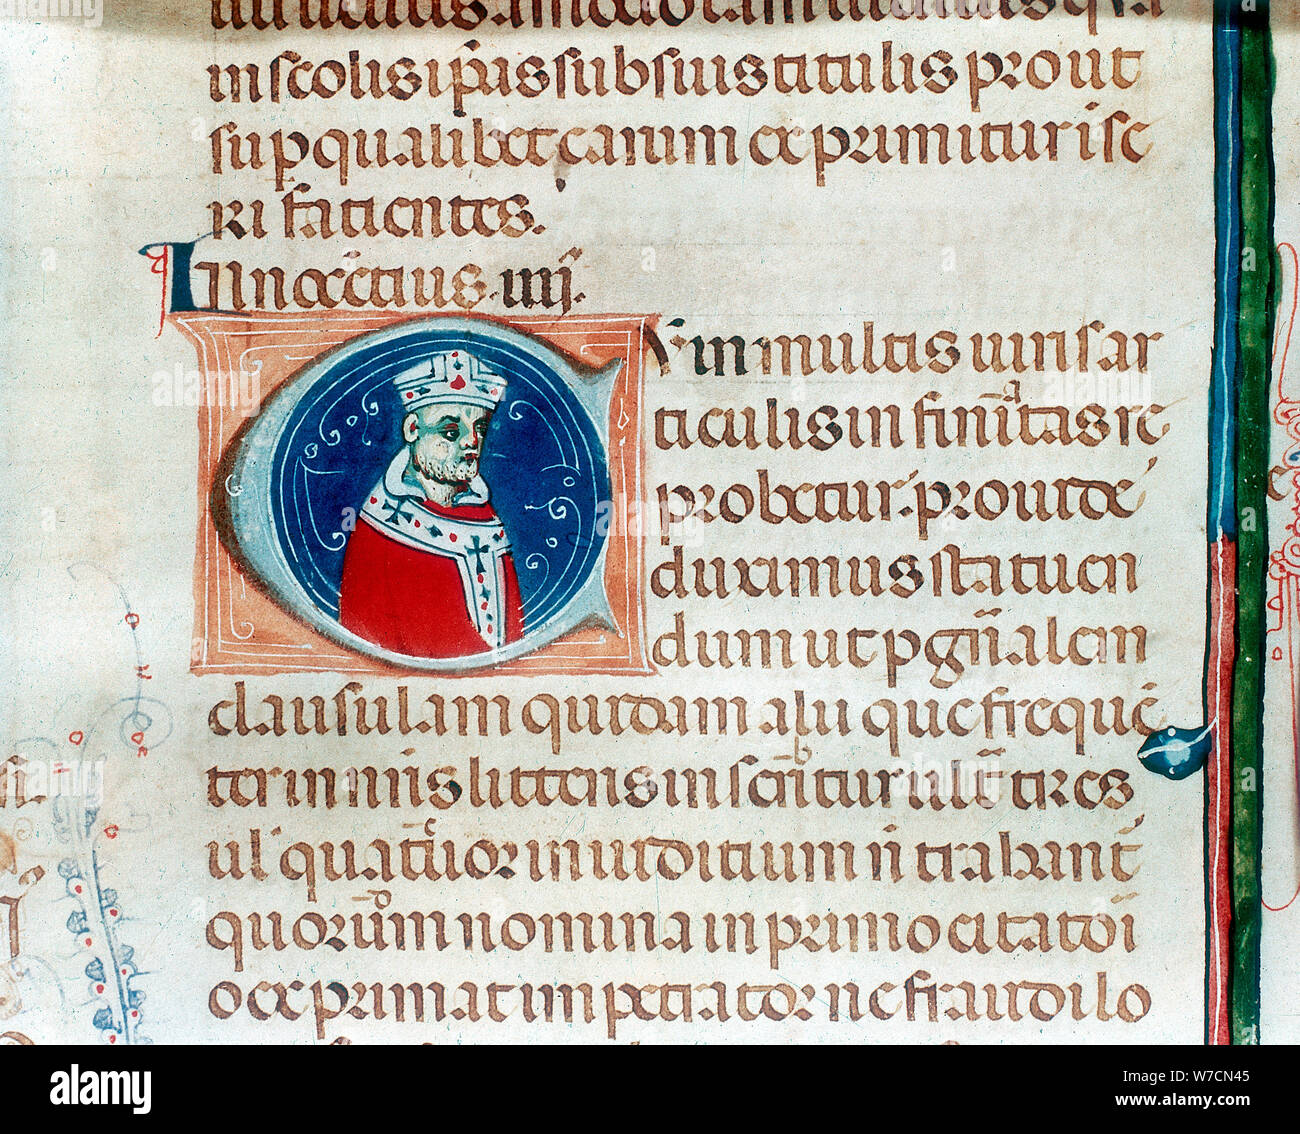 in scolis ip̄is sub suis titulis prout
sup qualibet earum exprimitur isc
ri fatientes.
Innocētius iiij.
Cum in multis iuris ar
ticulis in finitas re
probetur. prouide
duximus statuen
dum ut p gn̄alem
clausulam quidam alij que frequēt
ter in n̄is litteris in scribitur ult̄ tres
ul' quatuor in iuditium n̄ trahant̄
quorum nomina in primo citatōi
o exprimat impetrator ne fraudi lo
alamy
Image ID: W7CN45
www.alamy.com